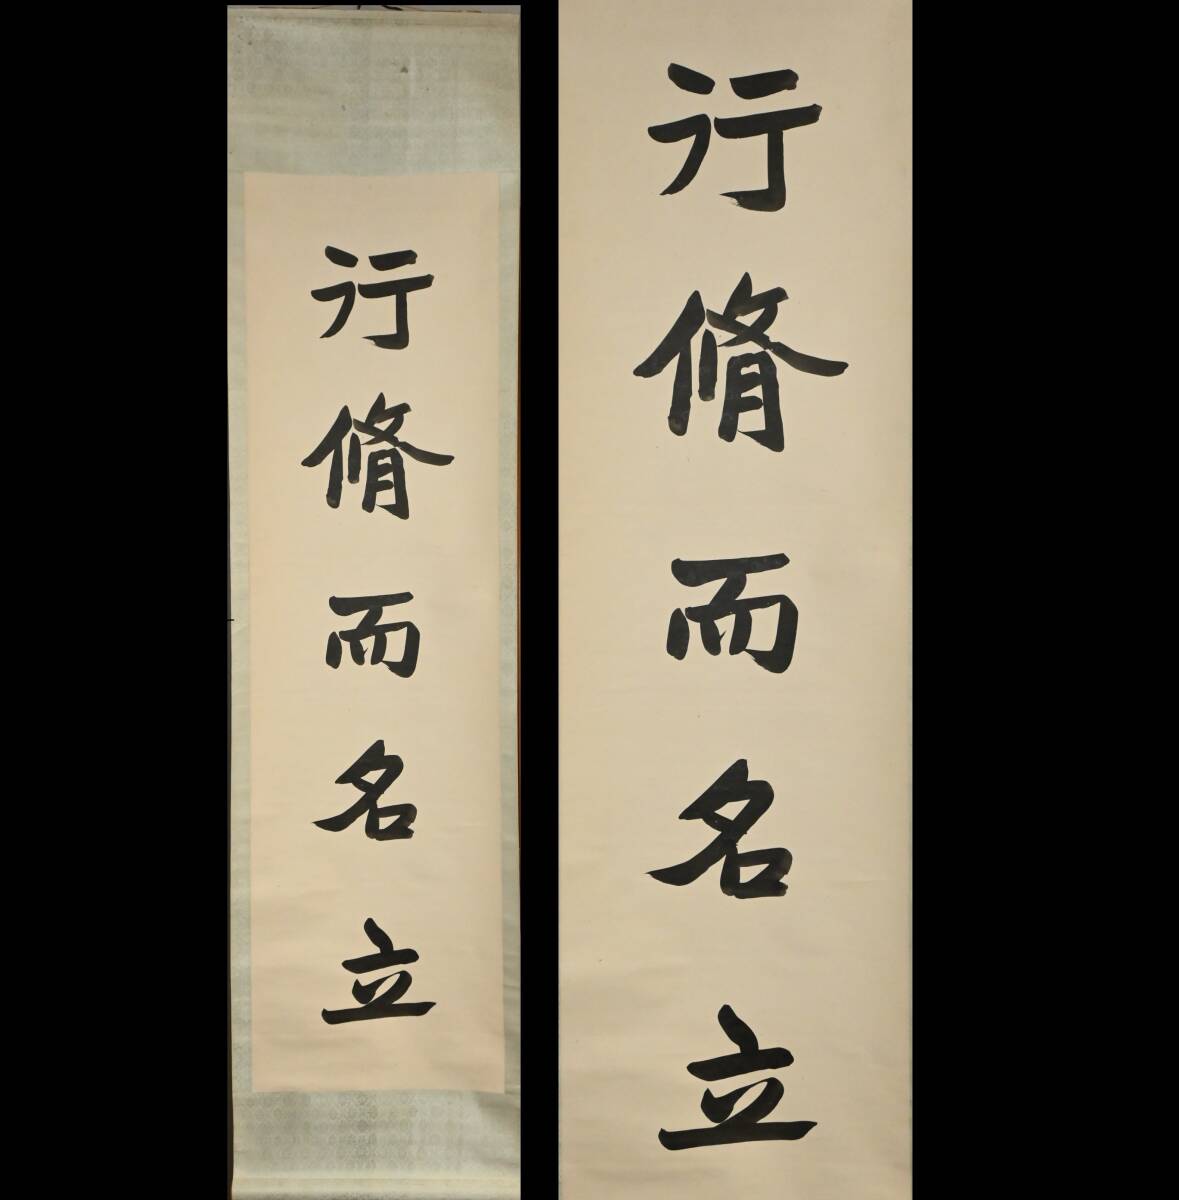 行脩而名立
行脩而名立